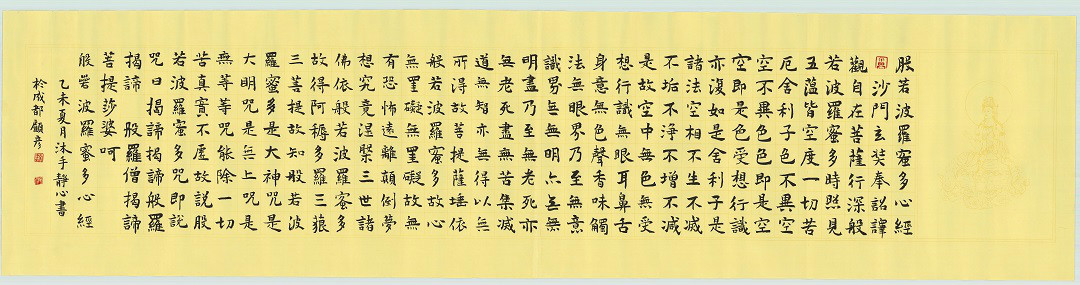 般若波羅蜜多心經
沙門玄奘奉詔譯
觀自在菩薩行深般
若波羅蜜多時照見
五蘊皆空度一切苦
厄舍利子色不異空
空不異色色即是空
空即是色受想行識
亦復如是舍利子是
諸法空相不生不滅
不垢不淨不增不減
是故空中無色無受
想行識無眼耳鼻舌
身意無色聲香味觸
法無眼界乃至無意
識界無無明亦無無
明盡乃至無老死亦
無老死盡無苦集滅
道無智亦無得以無
所得故菩提薩埵依
般若波羅蜜多故心
無罣礙無罣礙故無
有恐怖遠離顛倒夢
想究竟涅槃三世諸
佛依般若波羅蜜多
故得阿耨多羅三藐
三菩提故知般若波
羅蜜多是大神咒是
大明咒是無上咒是
無等等咒能除一切
苦真實不虛故說般
若波羅蜜多咒即說
咒曰 揭諦揭諦般羅
揭諦 般羅僧揭諦
菩提莎婆呵
般若波羅蜜多心經
乙未夏月沐手靜心書
於成都顧彥